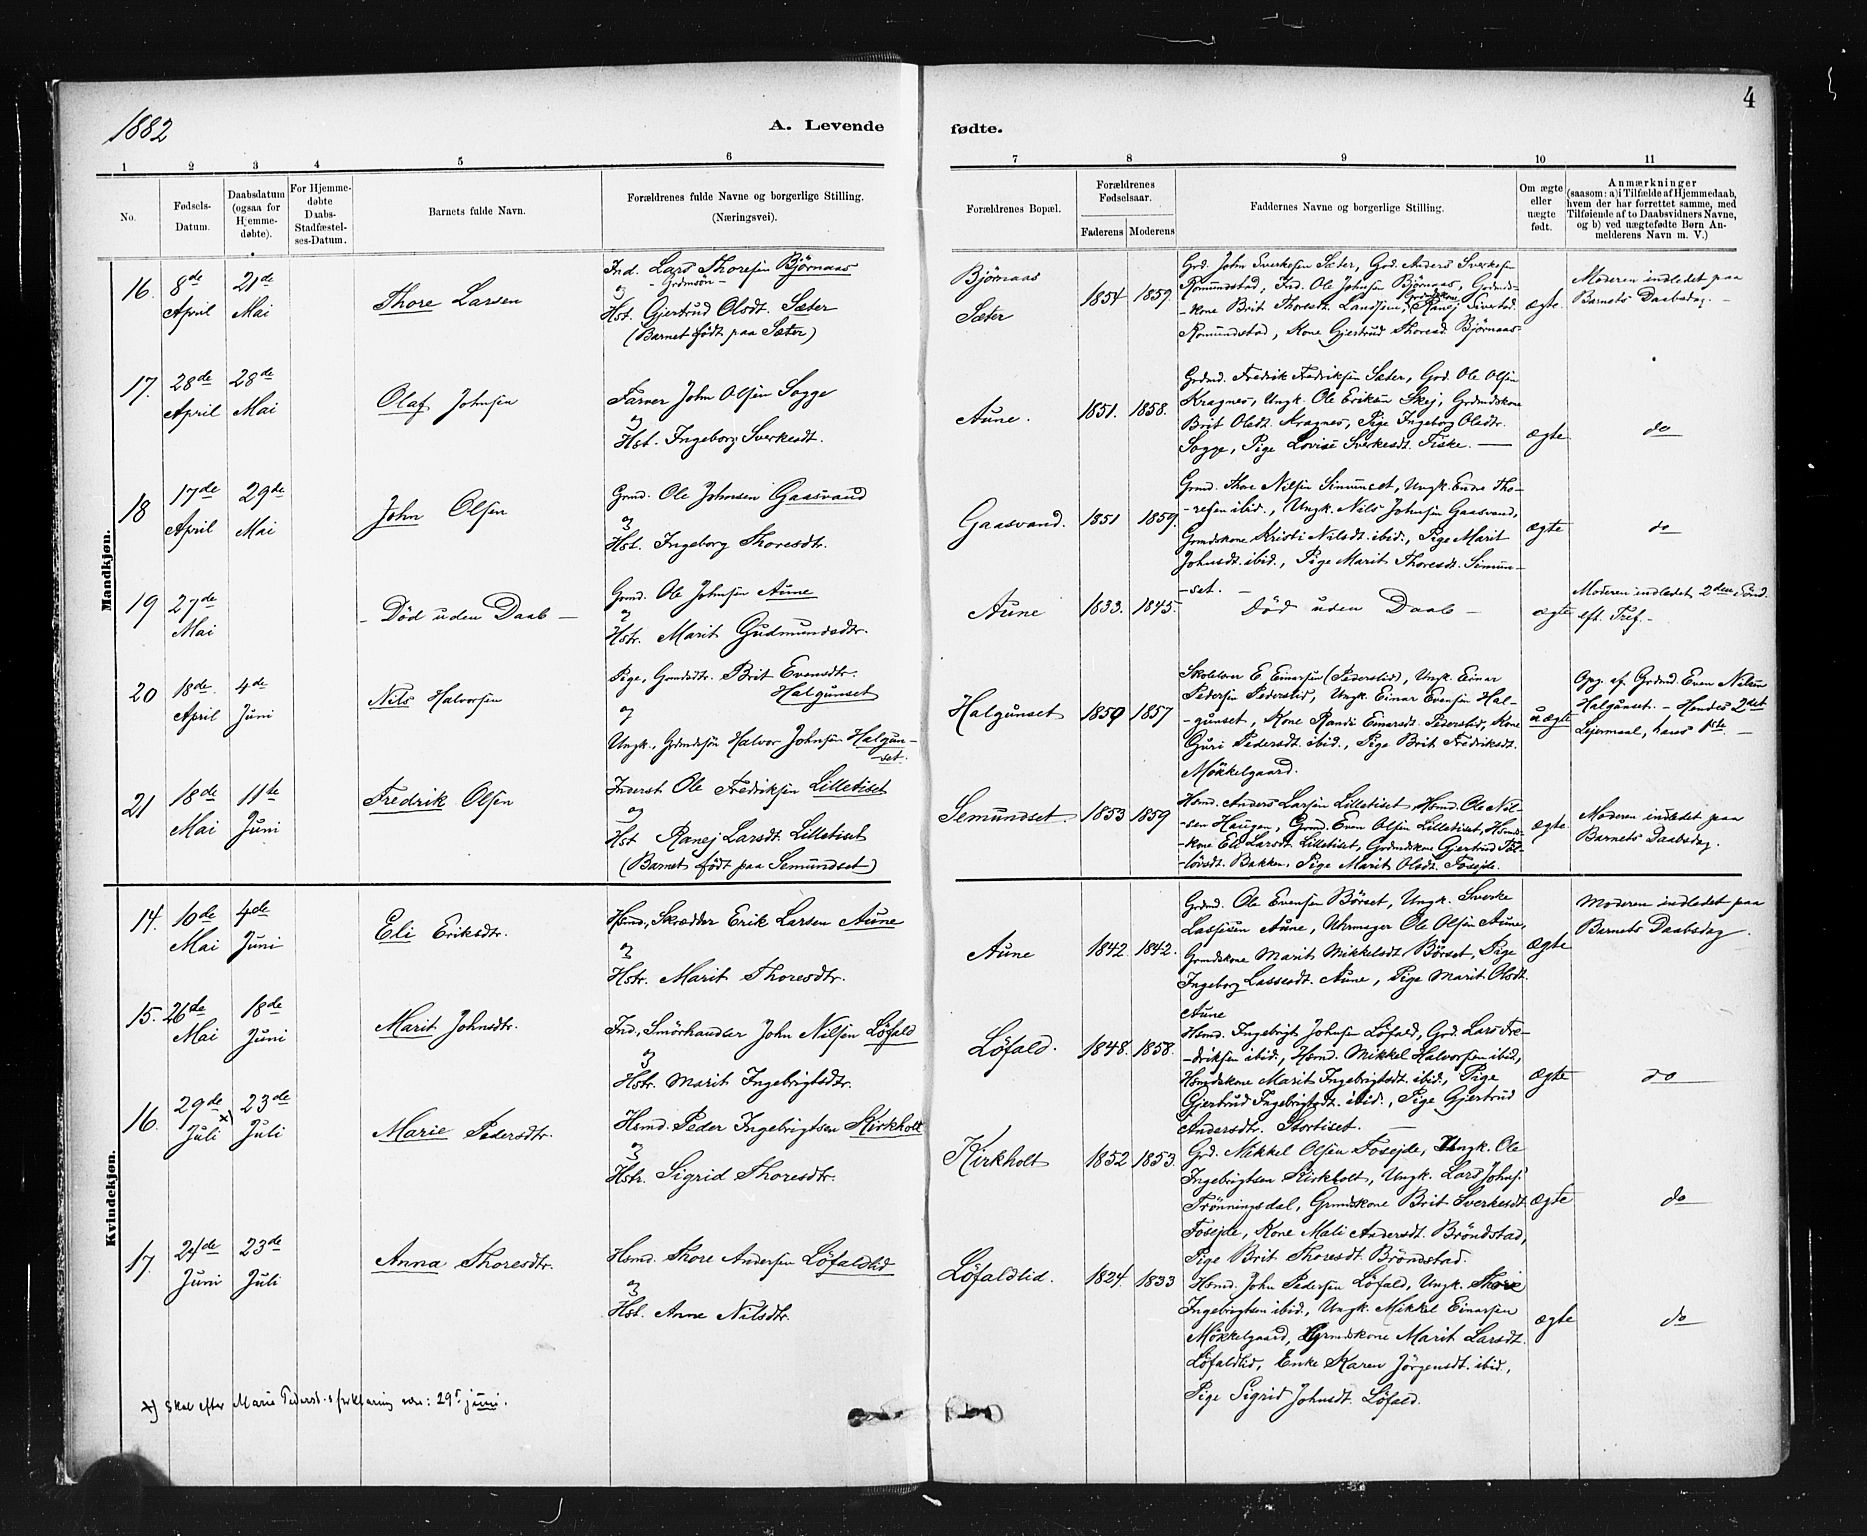 1882
A. Levende
1 2 3 4 5 6
No.
Fødsels-
Datum.
Daabsdatum
(ogsaa for
Hjemme-
døbte).
For Hjemme-
døbte
Daabs-
Stadfæstel-
ses-Datum.
Barnets fulde Navn.
Forældrenes fulde Navne og borgerlige Stilling.
(Næringsvei).
Mandkjøn.
16. 8de April 21de Mai
Thore Larsen
Ind. Lars Thoresen Bjørnaas
- Grdmsøn -
og
Hst. Gjertrud Olsdt. Sæter
(Barnet født paa Sæter)
17. 28de April 28de Mai
Olaf Johnsen
Farver John Olsen Sogge
og
Hst. Ingeborg Sverkesdt.
18 17de April 29de Mai
John Olsen
Grmd. Ole Johnsen Gaasvand
og
Hst. Ingeborg Thoresdtr.
19 27de Mai
- Död uden Daab -
Grmd. Ole Johnsen Aune
og
Hstr. Marit Gudmundsdtr.
20 18de April 4de Juni
Nils Halvorsen
Pige, Grmdsdtr. Brit Evensdtr.
Halgunset
og
Ungk., Grdmdssøn Halvor Johnsen Halgun-
set.
21 18de Mai 11te Juni
Fredrik Olsen
Inderst Ole Fredriksen Lilletiset
og
Hst Ranej Larsdt. Lilletiset
(Barnet født paa Semundset)
Kvindekjøn.
14. 10de Mai 4de Juni
Eli Eriksdtr.
Hsmd, Skrædder Erik Larsen Aune
og
Hstr. Marit Thoresdtr.
15. 26de Mai 18de Juni
Marit Johnsdtr.
Ind., Smörhandler John Nilsen Löfald
og
Hstr. Marit Ingebrigtsdtr.
16. 29de Juli x) 23de Juli
Marie Pedersdtr.
Hsmd. Peder Ingebrigtsen Kirkholt
og
Hstr. Sigrid Thoresdtr.
17. 24de Juni 23de Juli
Anna Thoresdtr.
Hsmd. Thore Andersen Löfaldlid
og
Hst. Anne Nilsdtr.
x) Skal efter Marie Pedersd.s forklaring være: 29de juni.
4
fødte.
7 8 9 10 11
Forældrenes Bopæl.
Forældrenes
Fødselsaar.
Faderens Moderens
Faddernes Navne og borgerlige Stilling.
Om ægte
eller
uægte
født.
Anmærkninger
(saasom: a) i Tilfælde af Hjemmedaab,
hvem der har forrettet samme, med
Tilføiende af to Daabsvidners Navne,
og b) ved uægtefødte Børn An-
melderens Navn m. V.)
Bjørnaas
Sæter
1854 1859.
Grd. John Sverkesen Sæter, Grd. Anders Sverkesen
Romundstad, Ind. Ole Johnsen Bjørnaas, Grdmds-
kone Brit Thoresdt. Langsem, Grdmdskone Ranej Sivertsd.
Romundstad, Kone Gjertrud Thoresd. Bjørnaas
ægte.
Moderen indledet paa
Barnets Daabsdag. -
Aune.
1851. 1858.
Grdmd. Fredrik Fredriksen Sæter, Grd. Ole Olsen
Kragnes, Ungk. Ole Eriksen Skej, Grdmdskone
Brit Olsdt. Kragnes, Pige Ingeborg Olsdtr.
Sogge, Pige Lovise Sverkesdt. Fiske. -
ægte
do
Gaasvand.
1851 1859.
Grmd. Thore Nilsen Simunset, Ungk. Endre Tho-
-resen ibid., Ungk. Nils Johnsen Gaasvand,
Grmdskone Kristi Nilsdt. ibid., Pige Marit
Johnsdt. ibid., Pige Marit Thoresdt. Simun-
-set. -
ægte
do
Aune
1833. 1845.
Död uden Daab -
ægte
Moderen indledet 2den Sönd.
eft. Tref. -
Halgunset
1850 1857
Skolelærer E. Einarsen (Pederstid), Ungk. Einar
Pedersen Pederstid, Ungk. Einar Evensen Hal-
-gunset, Kone Randi Einarsdt. Pederstid, Kone
Guri Pedersdt. ibid., Pige Brit Fredriksdt.
Møkkelgaard.
uægte
Opg. af Grdmd. Even Nilsen
Halgunset. - Hendes 2det
Lejermaal, hans 1ste. -
Semundset.
1853 1859
Hsmd. Anders Larsen Lilletiset, Hsmd. Ole Nil-
-sen Haugen, Grmd. Even Olsen Lilletiset, Hsmds-
-kone Eli Larsdt. Lilletiset, Grdmdskone Gjertrud Tol-
-lövsdt. Bakken, Pige Marit Olsdt. Fosejde.
ægte
Moderen indledet paa
Barnets Daabsdag.
Aune
1842 1842.
Grdmd. Ole Evensen Börset, Ungk. Sverke
Lassesen Aune, Uhrmager Ole Olsen Aune,
Grmdskone Marit Mikkelsdt Börset, Pige
Ingeborg Lassesdt. Aune, Pige Marit Olsdt.
Aune
ægte
Moderen indledet paa
Barnets Daabsdag.
Löfald.
1848. 1858.
Hsmd. Ingebrigt Johnsen Löfald, Grd. Lars Fre-
-driksen ibid., Hsmd. Mikkel Halvorsen ibid,
Hsmdskone Marit Ingebrigtsdt. ibid., Pige
Gjertrud Ingebrigtsdt. ibid., Pige Gjertrud
Andersdtr. Stortiset. -
ægte
do
Kirkholt
1852 1853.
Grd. Mikkel Olsen Fosejde, Ungk. Ole
Ingebrigtsen Kirkholt, Ungk. Lars Johns.
Trönningsdal, Grmdskone Brit Sverkesdt
Fosejde, Kone Mali Andersdt. Bröndstad,
Pige Brit Thoresdt. Bröndstad.
ægte
do
Löfaldlid.
1824. 1833
Hsmd. John Pedersen Löfald, Ungk. Thore
Ingebrigtsen ibid., Ungk. Mikkel Einarsen
Møkkelgaard, Grmdskone Marit Larsdt.
Löfaldlid, Enke Karen Jörgensdt. ibid.,
Pige Sigrid Johnsdt. Löfald.
ægte
do